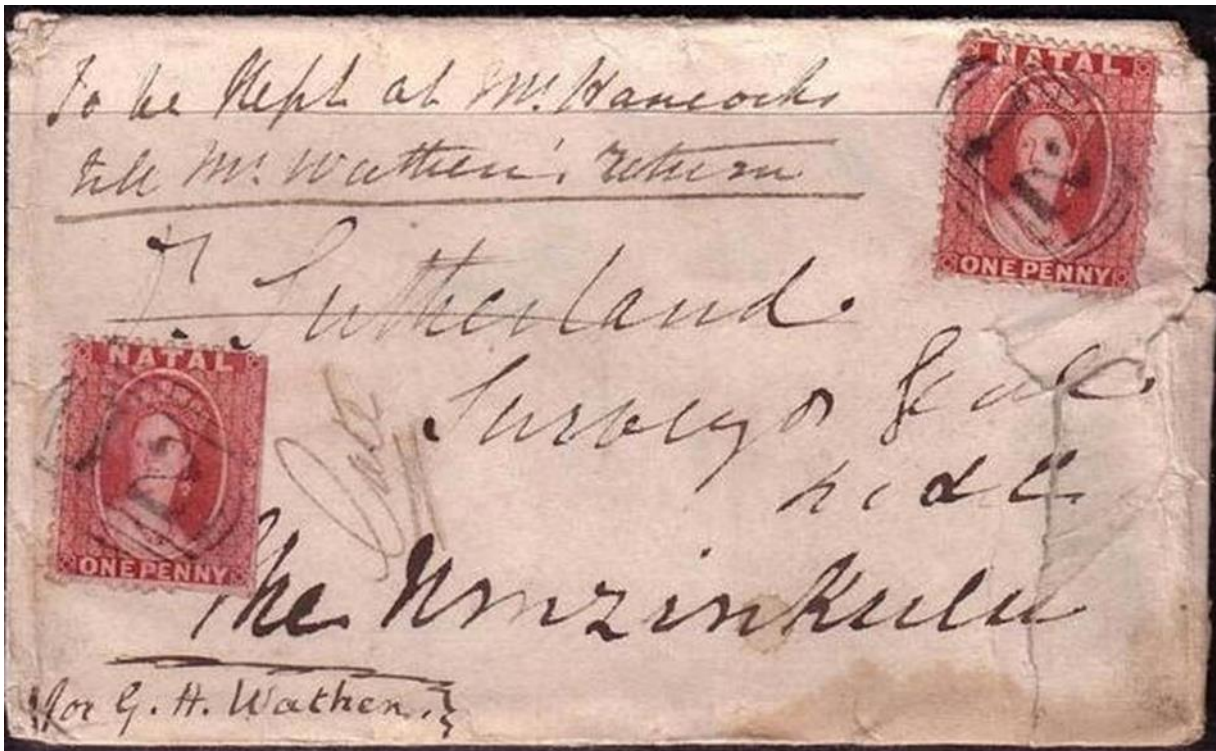 To be Kept at Mr. Hancocks
till Mr. Wathen's return
NATAL
ONE PENNY
Dr. Sutherland.
Surveyor Genl.
&c &c
NATAL
ONE PENNY
The Umzinkulu
for G. H. Wathen